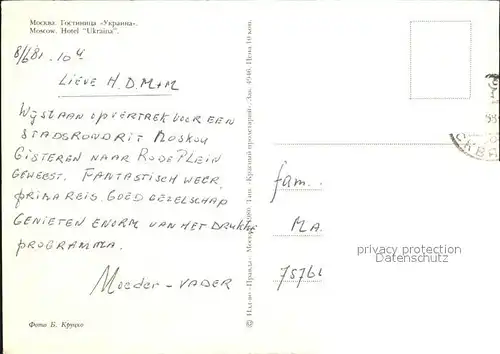 Москва. Гостиница «Украина».
Moscow. Hotel "Ukraina".
8/681. 10 u
LIEVE H. D. M+M
WIJ STAAN OP VERTREK VOOR EEN
STADSRONDRIT MOSKOU
GISTEREN NAAR RODE PLEIN
GEWEEST. FANTASTISCH WEER,
PRIMA REIS. GOED GEZELSCHAP
GENIETEN ENORM VAN HET DRUKKE
PROGRAMMA.
Moeder - VADER
Фото Б. Круцко
© Изд-во «Правда». Москва. 1980. Тип. «Красный пролетарий». Зак. 4946. Цена 10 коп.
СКВА
fam.
MA
7576
privacy protection
Datenschutz